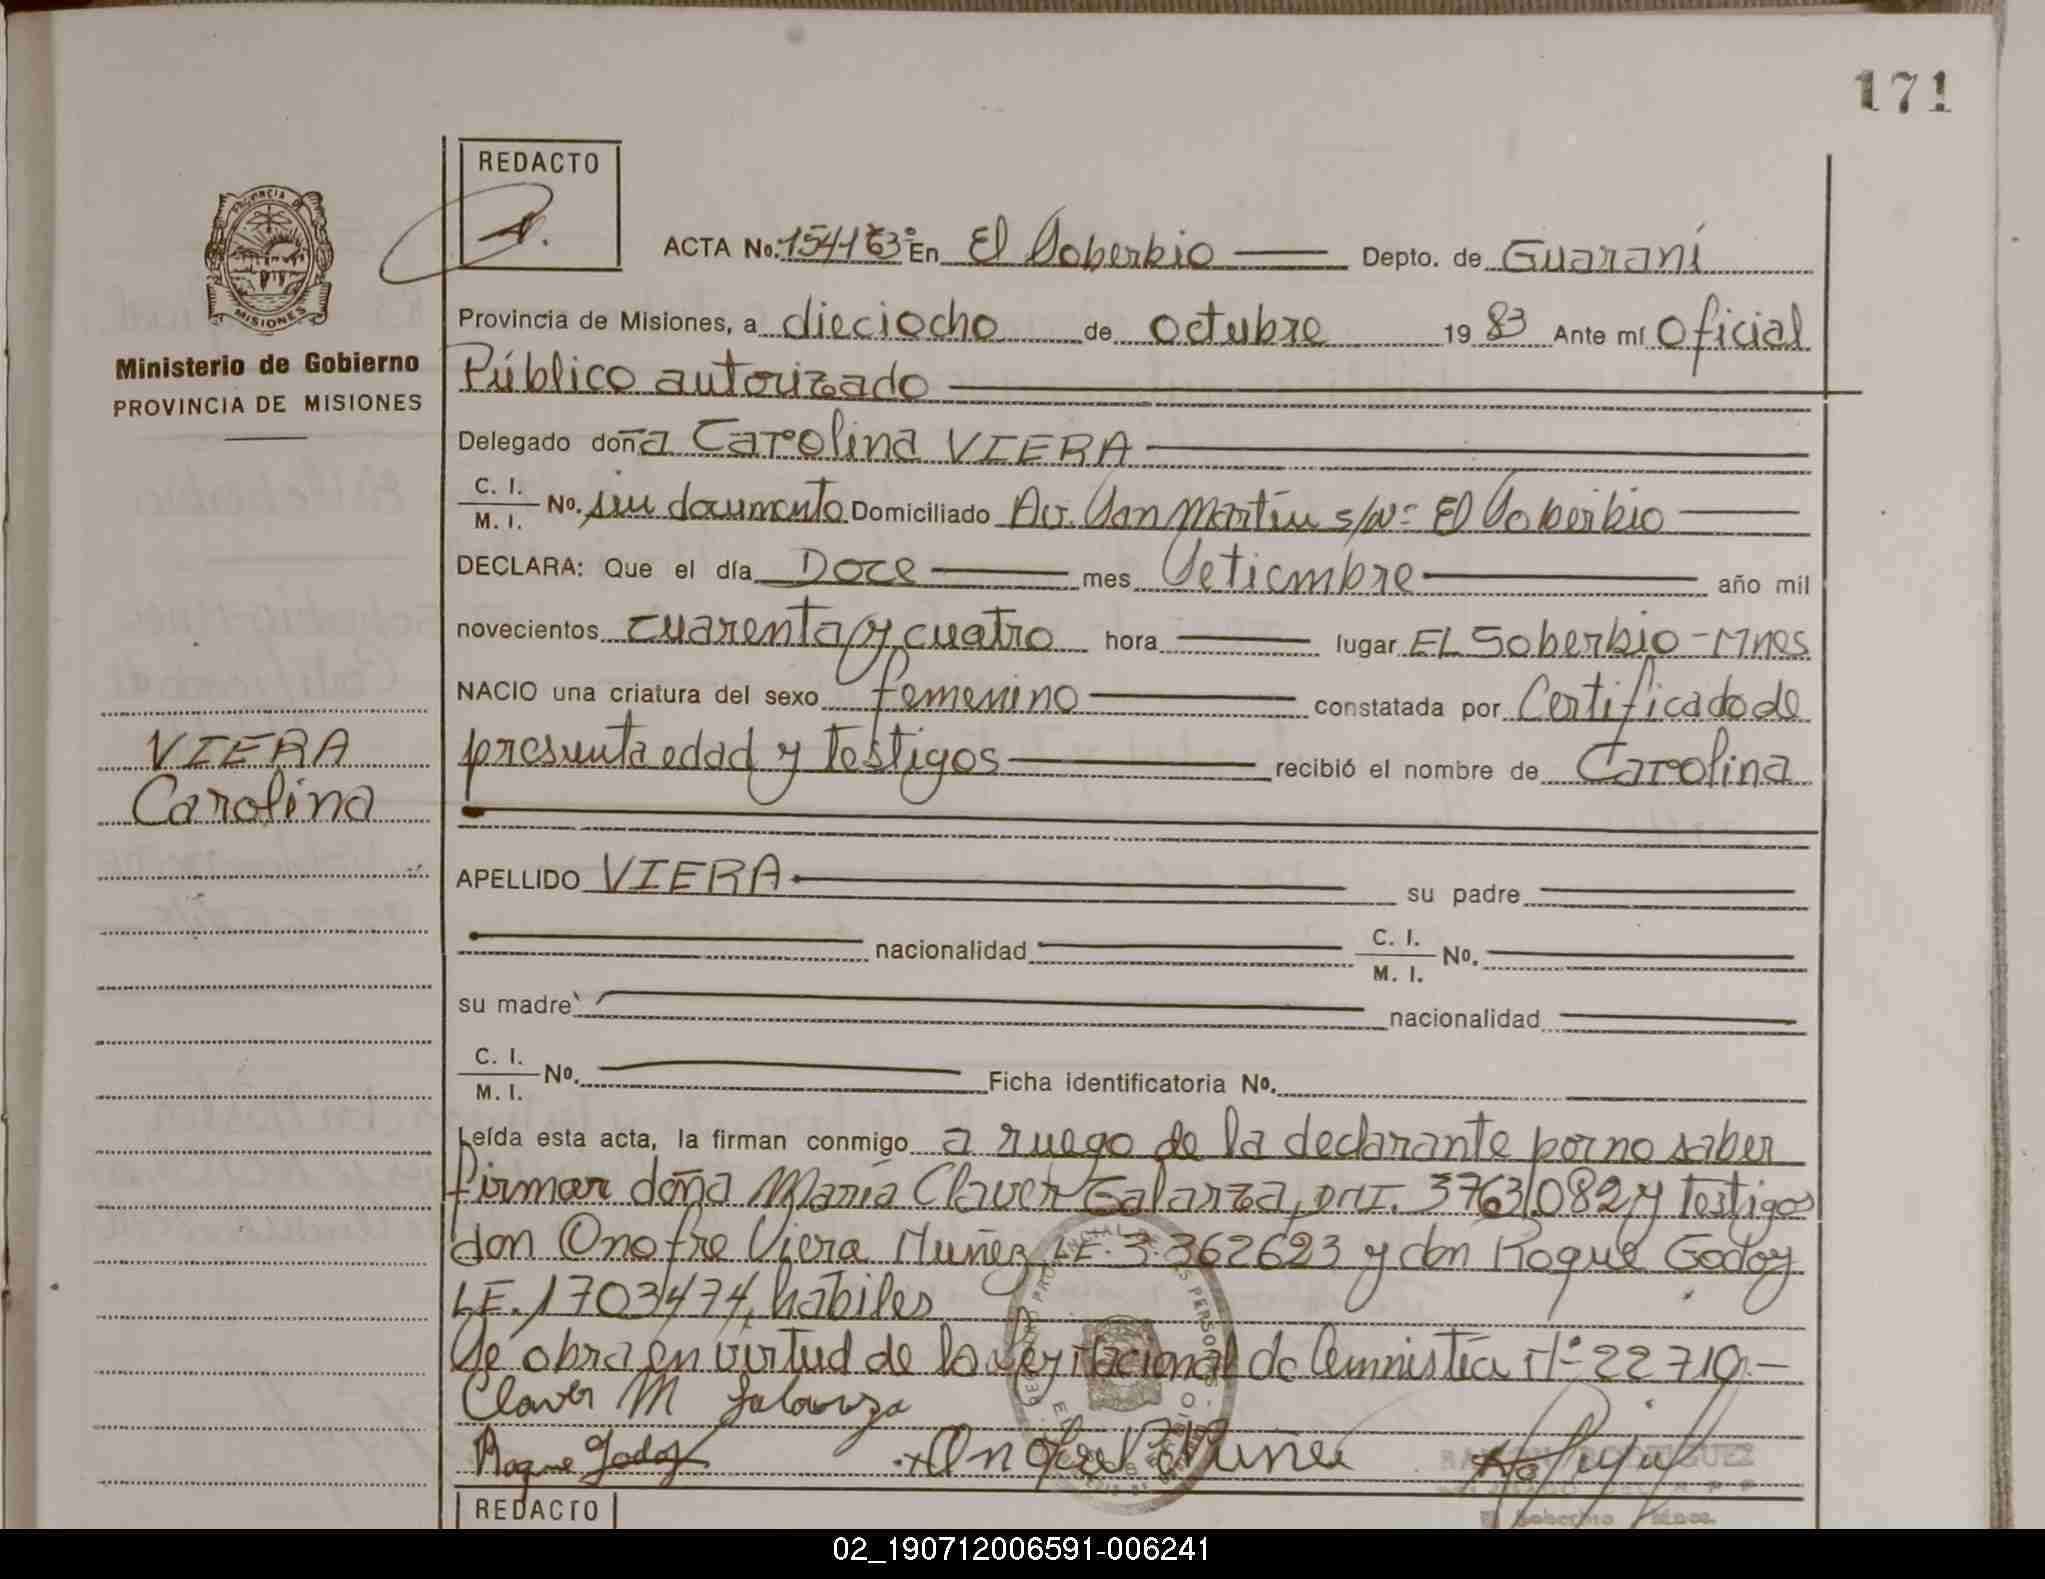 171
REDACTO
PROVINCIA DE
MISIONES
Ministerio de Gobierno
PROVINCIA DE MISIONES
ACTA No. En El Soberbio Depto. de Guaraní
Provincia de Misiones, a dieciocho de octubre 1983 Ante mí Oficial
Público autorizado
Delegado doña Carolina VIERA
C. I.
M. I. No. sin documento Domiciliado Av. San Martín s/Nº El Soberbio
DECLARA: Que el día Doce mes Setiembre año mil
novecientos cuarenta y cuatro hora lugar EL Soberbio - Mnes
NACIO una criatura del sexo femenino constatada por Certificado de
presunta edad y testigos recibió el nombre de Carolina
VIERA
Carolina
APELLIDO VIERA su padre
nacionalidad C. I.
M. I. No.
su madre nacionalidad
C. I.
M. I. No. Ficha identificatoria No.
Leída esta acta, la firman conmigo a ruego de la declarante por no saber
firmar doña María Claver Galarza, DNI. 3763082 y testigos
don Onofre Viera Muñez LE. 3.362623 y don Roque Godoy
LE. 1703474, habiles
Se obra en virtud de la Ley Nacional de Amnistía Nº 22710.-
Claver M Galarza
Roque Godoy
REDACTO
El Soberbio
02_190712006591-006241